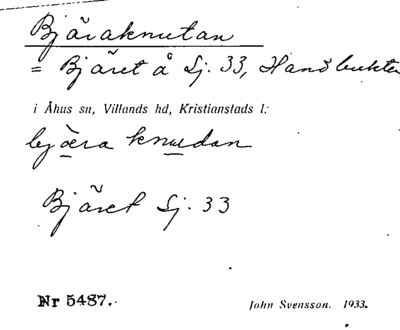 Bjäraknutan
= Bjäret å Sj. 33, Hanöbukten
i Åhus sn, Villands hd, Kristianstads l:
bjæra knudan
Bjäret Sj. 33
Nr 5487. John Svensson. 1933.